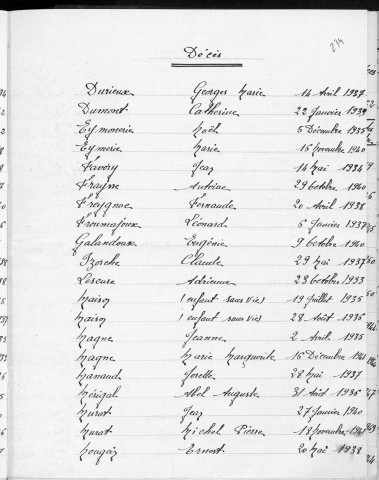 234
Décès
Durieux Georges Marie 14 Avril 1937
Dumont Catherine 22 Janvier 1939
Eymonerie Noël 5 Décembre 1935
Eymerie Marie 15 novembre 1940
Favory Jean 14 Mai 1934
Fraysse Antoine 29 Octobre 1940
Freygnac Fernande 20 Avril 1938
Froumajoux Léonard 6 Janvier 1937
Galandoux Eugénie 9 Octobre 1940
Claude 29 Mai 1937
Lescure Adrienne 23 Octobre 1933
(enfant sans vie) 19 Juillet 1935
(enfant sans vie) 28 Août 1936
Magne Jeanne 2 Avril 1935
Magne Marie Marguerite 15 Décembre 1941
Manaud Josette 28 Mai 1937
Mérigal Abel Auguste 31 Août 1936
Murat Jean 27 Janvier 1940
Murat Michel Pierre 18 novembre
Ernest 20 Mai 1938